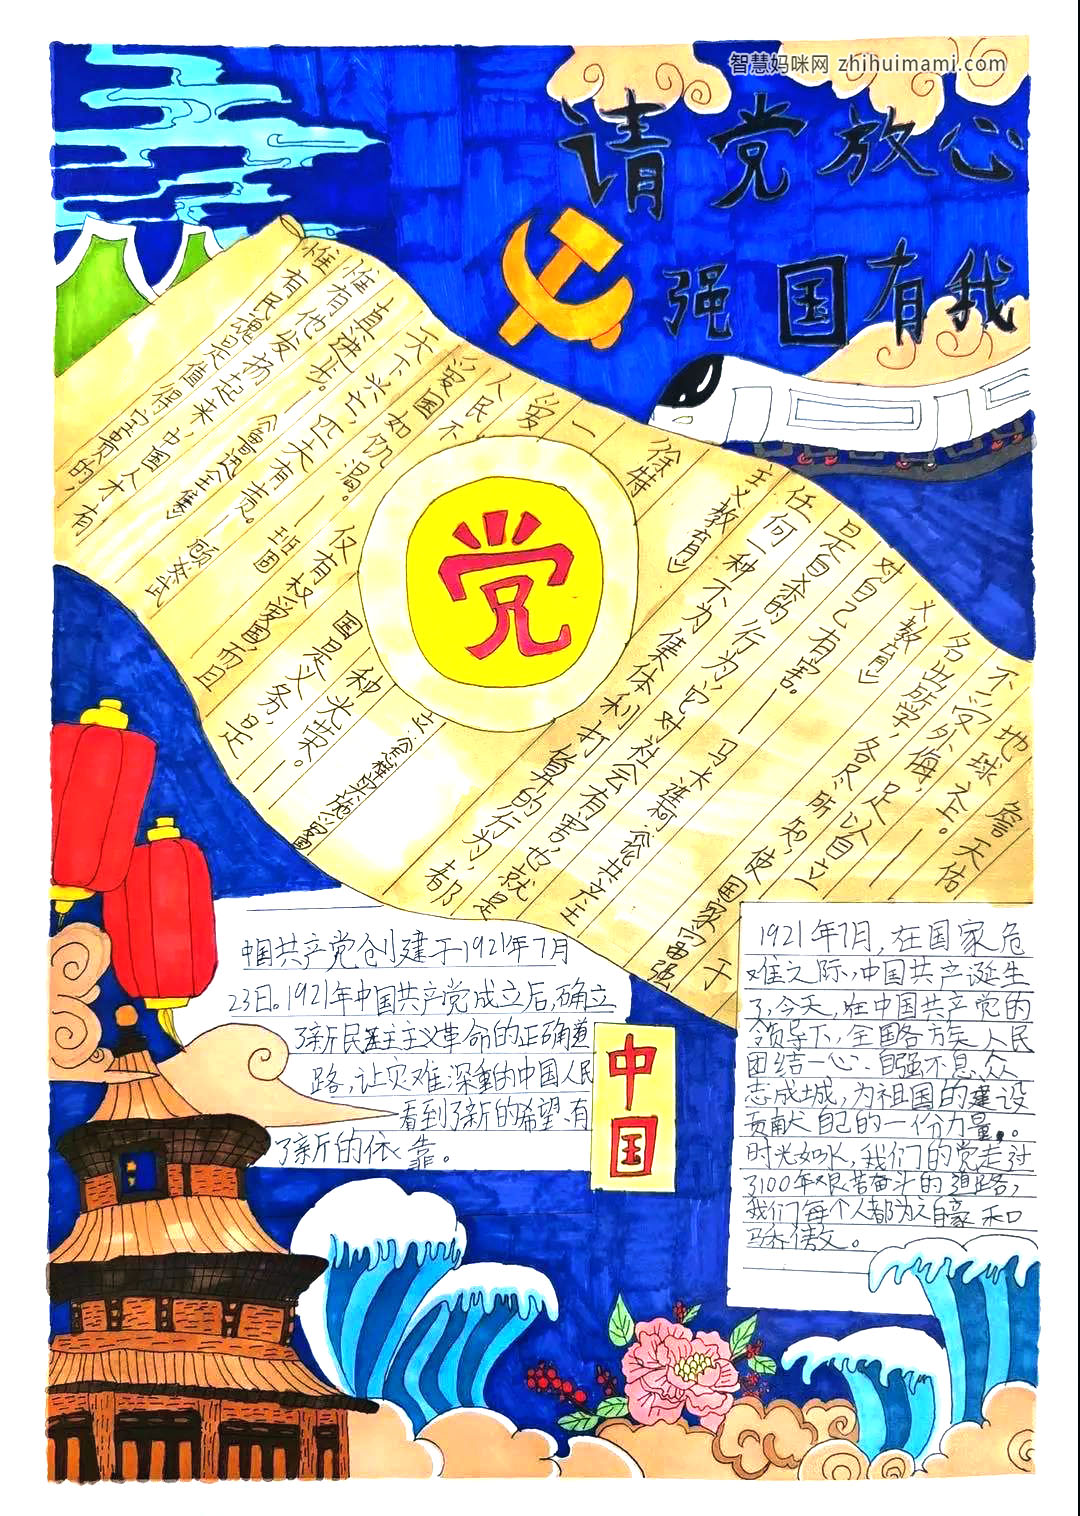 智慧妈咪网 zhihuimami.com
请党放心
强国有我
惟有民魂是值得宝贵的，有
惟有他发扬起来，中国人才
有真进步。—《鲁迅全集》
天下兴亡，匹夫有责。—顾炎武
爱国如饥渴。—班固
人民不仅有权爱国，而且
爱国是义务，是
一种光荣。——
徐特立
主义教育》
党
任何一种不为集体利打算的行为，都
是自杀的行为，它对社会有害，也就是
对自己有害。——马卡连柯《论共产主
义教育》
各出所学，各尽所知，使国家富强
不受外侮，足以自立于
地球之上。—詹天佑
中国共产党创建于1921年7月
23日。1921年中国共产党成立后，确立
了新民主主义革命的正确道
路，让灾难深重的中国人民
看到了新的希望、有
了新的依靠。
中国
1921年7月，在国家危
难之际，中国共产诞生
了，今天，在中国共产党的
领导下，全国各方族人民
团结一心、自强不息，众
志成城，为祖国的建设
贡献自己的一份力量。
时光如水，我们的党走过
了100年艰苦奋斗的道路，
我们每个人都为之自豪和
骄傲。